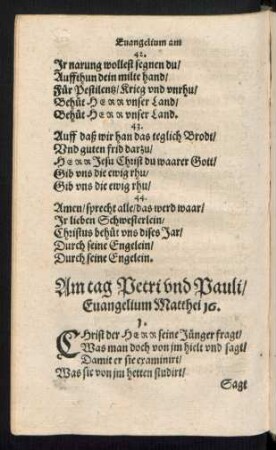 Euangelium am
42.
Ir narung wollest segnen du/
Auffthun dein milte hand/
Für Pestilentz/Krieg vnd vnrhu/
Behüt HERR vnser Land/
Behüt HERR vnser Land.
43.
Auff daß wir han das teglich Brodt/
Vnd guten frid darzu/
HERR Jesu Christ du waarer Gott/
Gib vns die ewig rhu/
Gib vns die ewig rhu/
44.
Amen/sprecht alle/das werd waar/
Ir lieben Schwesterlein/
Christus behüt vns dises Jar/
Durch seine Engelein/
Durch seine Engelein.
Am tag Petri vnd Pauli/
Euangelium Matthei 16.
1.
CHrist der HERR seine Jünger fragt/
Was man doch von jm hielt vnd sagt/
Damit er sie examinirt/
Was sie von jm hetten studirt/
Sagt